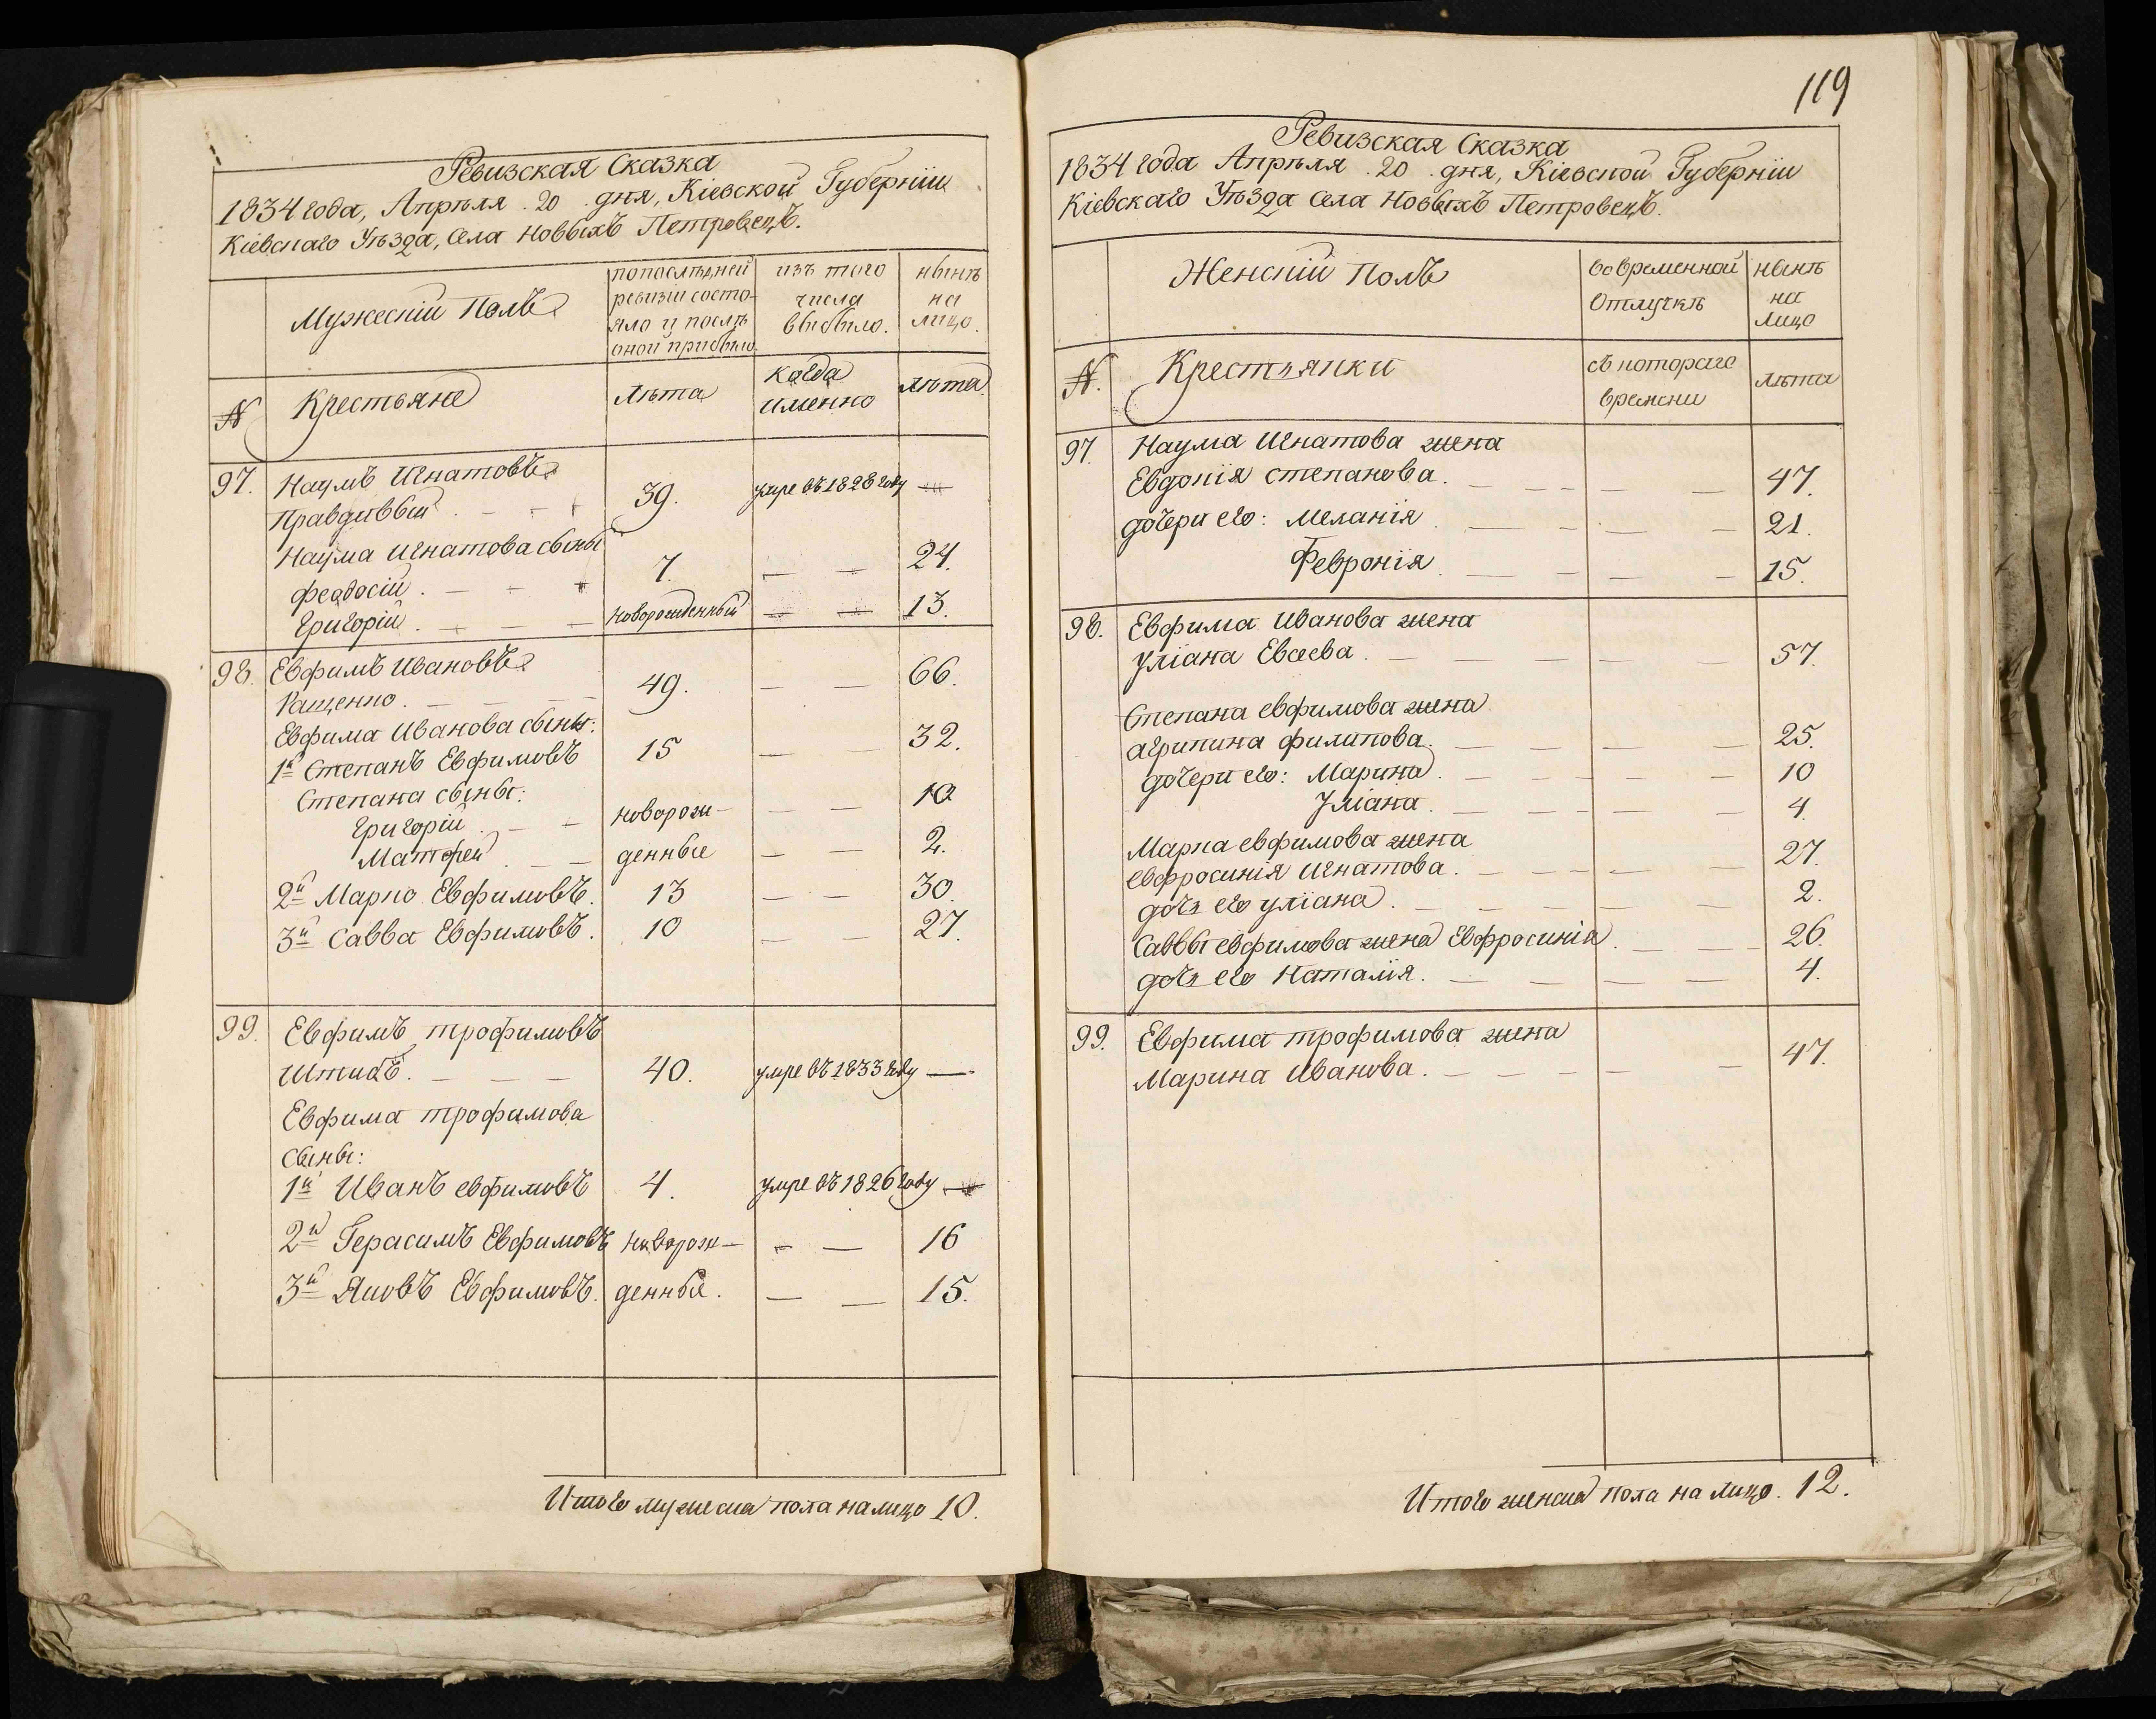 Ревизская Сказка
1834 года, Апрѣля . 20 . дня, Кіевской Губерніи
Кіевскаго Уѣзда, Села Новыхъ Петровецъ.
Мужескій Полъ
попослѣдней
ревизіи состо-
яло и послѣ
оной прибыло.
изъ того
числа
выбыло.
нынѣ
на
лицо.
№
Крестьяне
лѣта
когда
именно
лѣта
97. Наумъ Игнатовъ
Правдивый . 39. умре въ 1828 году —
Наума Игнатова сыны
Феодосій . 7. — — 24.
Григорій . новорожденный — — 13.
98. Евфимъ Ивановъ
Ращенко . 49. — — 66.
Евфима Иванова сыны:
1й Степанъ Евфимовъ 15 — — 32.
Степана сыны:
Григорій . — новорож- — — 10
Матфей . — денные — — 2.
2й Марко Евфимовъ. 13 — — 30.
3й Савва Евфимовъ. 10 — — 27.
99. Евфимъ трофимовъ
Штыбъ. — — — 40. умре въ 1833 году —
Евфима трофимова
сыны:
1й Иванъ евфимовъ 4. умре въ 1826 году —
2й Герасимъ Евфимовъ новорож- — — 16
3й Яковъ Евфимовъ. денные. — — 15.
Итого мужеска пола налицо 10.
119
Ревизская Сказка
1834 года Апрѣля . 20 . дня, Кіевской Губерніи
Кіевскаго Уѣзда Села Новыхъ Петровецъ.
Женскій Полъ
вовременной
отлучкѣ
нынѣ
на
лицо
№.
Крестьянки
съ котораго
времени
лѣта
97. Наума Игнатова жена
Евдокія степанова. — — — — — 47.
дочери его: Меланія . — — — — 21.
Февронія . — — — — 15.
98. Евфима Иванова жена
Уліана Евсеева . — — — — — 57.
Степана евфимова жена
агрипина филипова. — — — — 25.
дочери его: Марина . — — — — — 10
Уліана . — — — — — 4.
Марка евфимова жена
евфросинія Игнатова . — — — — — 27.
дочь его уліана . — — — — — 2.
Саввы евфимова жена Евфросинія . — — — 26.
дочь его Наталія . — — — — — 4.
99. Евфима трофимова жена
Марина Иванова . — — — — — 47.
Итого женска пола на лицо. 12.